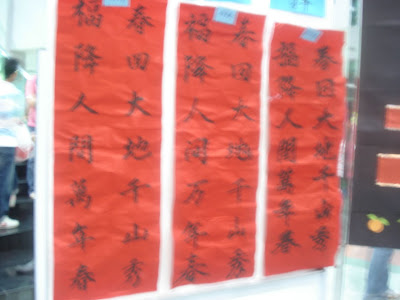 春回大地千山秀
福降人間萬年春
春回大地千山秀
福降人间万年春
春回大地千山秀
福降人間萬年春